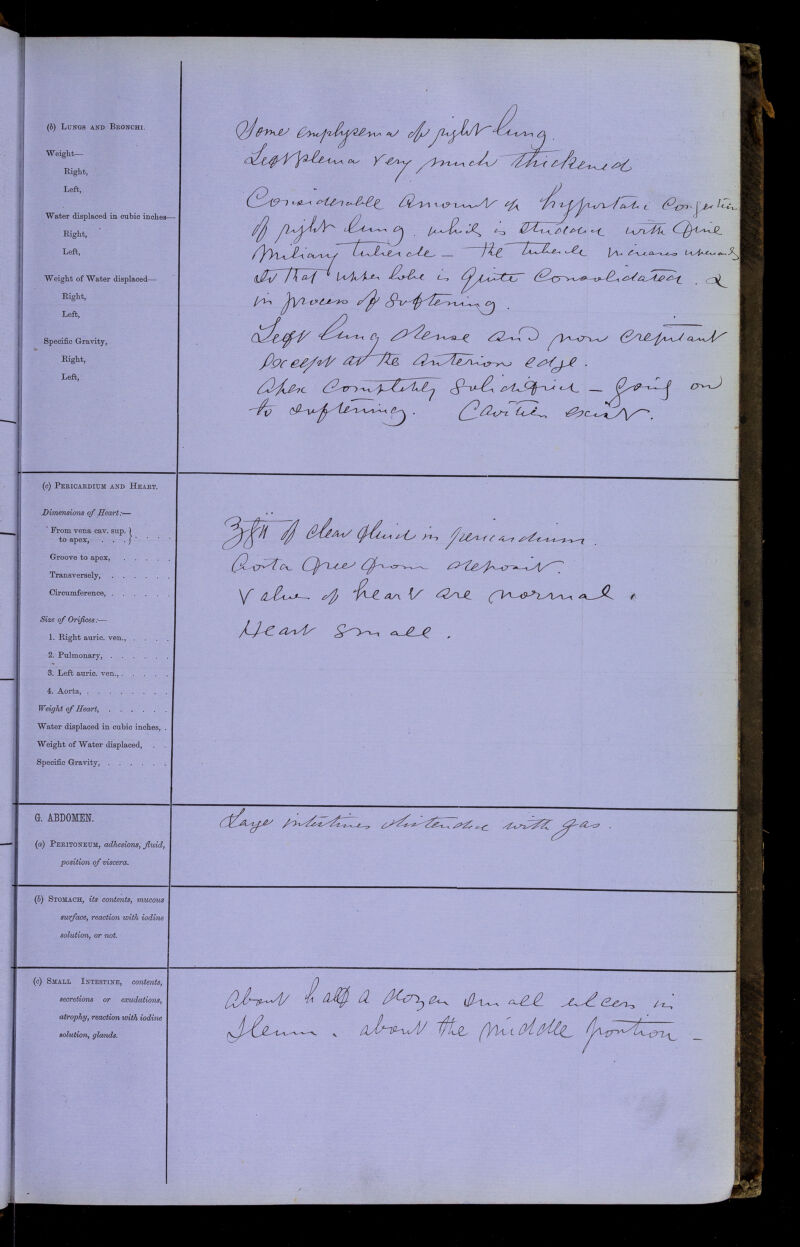 (b) LUNGS AND BRONCHI.
Weight—
Right,
Left,
Water displaced in cubic inches—
Right,
Left,
Weight of Water displaced—
Right,
Left,
Specific Gravity,
Right,
Left,
Some emphysema of right lung.
Left pleura very much thickened
Considerable amount of hypostatic Congestion
of right lung. which is studded with fine
Miliary tubercle — The tubercle increases upwards
so that upper lobe is quite consolidated. &
in process of softening.
Left lung dense and non crepitant
except at the anterior edge.
Apex completely solidified — going on
to softening. Cavities exist.
(c) PERICARDIUM AND HEART.
Dimensions of Heart:—
From vena cav. sup. }
to apex, . . . } . . . .
Groove to apex, . . . . .
Transversely, . . . . . .
Circumference, . . . . . .
Size of Orifices:—
1. Right auric. ven., . . . .
2. Pulmonary, . . . . . .
3. Left auric. ven., . . . . .
4. Aorta, . . . . . . . .
Weight of Heart, . . . . . .
Water displaced in cubic inches, .
Weight of Water displaced, . .
Specific Gravity, . . . . . .
of clear fluid in pericardium.
Aorta free from deposit.
Valves of heart are normal.
Heart small.
G. ABDOMEN.
(a) PERITONEUM, adhesions, fluid,
position of viscera.
Large intestines distended with gas.
(b) STOMACH, its contents, mucous
surface, reaction with iodine
solution, or not.
(c) SMALL INTESTINE, contents,
secretions or exudations,
atrophy, reaction with iodine
solution, glands.
About half a dozen small ulcers in
Ileum. about the middle portion —